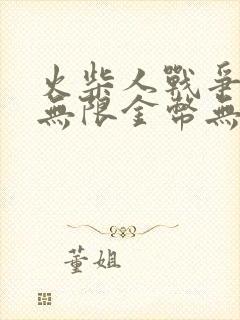 火柴人戰爭
無限金幣無
董姐